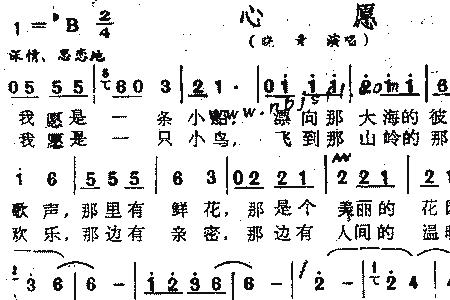 心 愿
1=♭B 2/4
(晓青 演唱)
深情、思恋地
05 55 | 603 | 21· | 0111 | 2111 | 6
我愿是一条小船 漂向那大海的彼
我愿是一只小鸟, 飞到那山岭的那
www.nbjst1.com
i 6 | 555 | 6 3 | 0221 | 2221 | 22
歌声,那里有鲜花,那是个美丽的花
欢乐,那边有亲密,那边有人间的温
36 | 6- | 1236 | 6- | 2- | 24 | 4